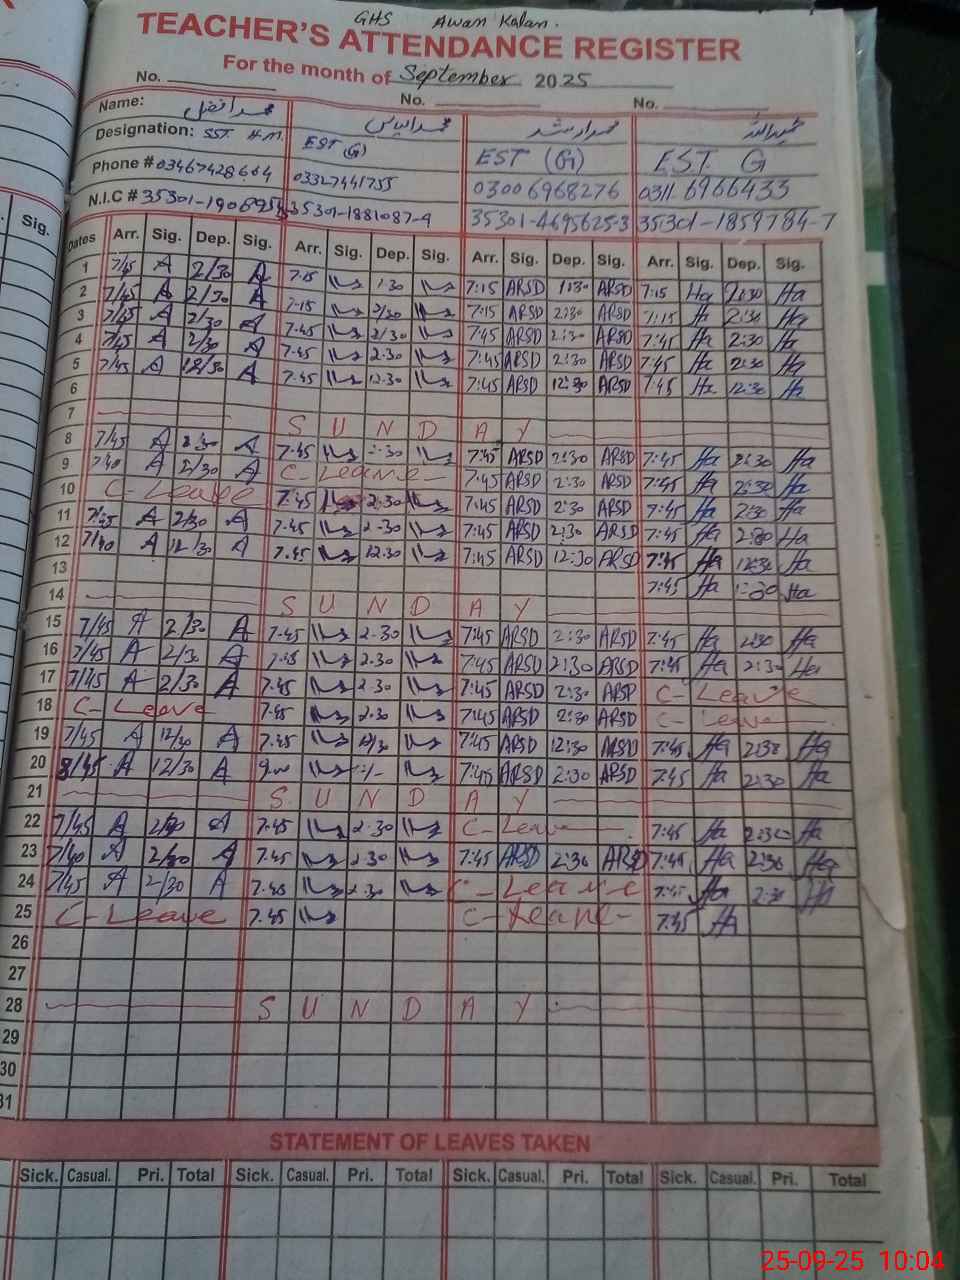 GHS Awan Kalan.
TEACHER'S ATTENDANCE REGISTER
For the month of September 2025
No. No. No.
Name: محمد افضل محمد الیاس محمد ارشد حمید اللہ
Designation: SST H.M. EST (G) EST (G) EST G
Phone # 03467428664 03327441755 03006968276 0311-6966433
N.I.C # 35301-1881087-9 35301-4695625-3 35301-1859784-7
Sig. Dates Arr. Sig. Dep. Sig. Arr. Sig. Dep. Sig. Arr. Sig. Dep. Sig. Arr. Sig. Dep. Sig.
1 7/45 A 2/30 A 7:15 1:30 7:15 ARSD 1:30 ARSD 7:15 Ha Ha
2 7/45 A 2/30 A 7:15 2/30 7:15 ARSD 2:30 ARSD 7:15 H 2:30 Ha
3 7/45 A 2/30 A 7:45 2/30 7:45 ARSD 2:30 ARSD 7:45 Ha 2:30 Ha
4 7/45 A 2/30 A 7:45 2:30 7:45 ARSD 2:30 ARSD 7:45 Ha 2:30 Ha
5 7/45 A 12/30 A 7:45 12:30 7:45 ARSD 12:30 ARSD 7:45 Ha 12:30 Ha
6
7 S U N D A Y
8 7/45 A 2:30 A 7:45 7:45 ARSD 2:30 ARSD 7:45 Ha 2:30 Ha
9 7/40 A 2/30 A C-Leave 7:45 ARSD 2:30 ARSD 7:45 Ha 2:30 Ha
10 C-Leave 7:45 2:30 7:45 ARSD 2:30 ARSD 7:45 Ha 2:30 Ha
11 7/45 A 2/30 A 7:45 2:30 7:45 ARSD 2:30 ARSD 7:45 Ha 2:30 Ha
12 7/40 A 12/30 A 7:45 12:30 7:45 ARSD 12:30 ARSD 7:45 Ha 12:30 Ha
13 7:45 Ha Ha
14 S U N D A Y
15 7/45 A 2/30 A 7:45 2:30 7:45 ARSD 2:30 ARSD 7:45 Ha 2:30 Ha
16 7/45 A 2/30 A 7:45 2:30 7:45 ARSD 2:30 ARSD 7:45 Ha 2:30 Ha
17 7/45 A 2/30 A 7:45 2:30 7:45 ARSD 2:30 ARSD C-Leave
18 C-Leave 7:45 2:30 7:45 ARSD 2:30 ARSD C-Leave
19 7/45 A 12/30 A 7:45 7:45 ARSD 12:30 ARSD 7:45 Ha Ha
20 8/45 A 12/30 A 7:45 ARSD 2:30 ARSD 7:45 Ha 2:30 Ha
21 S U N D A Y
22 7/45 A 2/30 A 7:45 2:30 C-Leave 7:45 Ha 2:30 Ha
23 7/40 A 2/30 A 7:45 2:30 7:45 ARSD 2:30 ARSD 7:45 Ha 2:30 Ha
24 7/45 A 2/30 A 7:45 2:30 C-Leave 7:45 Ha 2:30 Ha
25 C-Leave 7:45 C-Leave 7:45 Ha
26
27
28 S U N D A Y
29
30
31
STATEMENT OF LEAVES TAKEN
Sick. Casual. Pri. Total Sick. Casual. Pri. Total Sick. Casual. Pri. Total Sick. Casual. Pri. Total
25-09-25 10:04